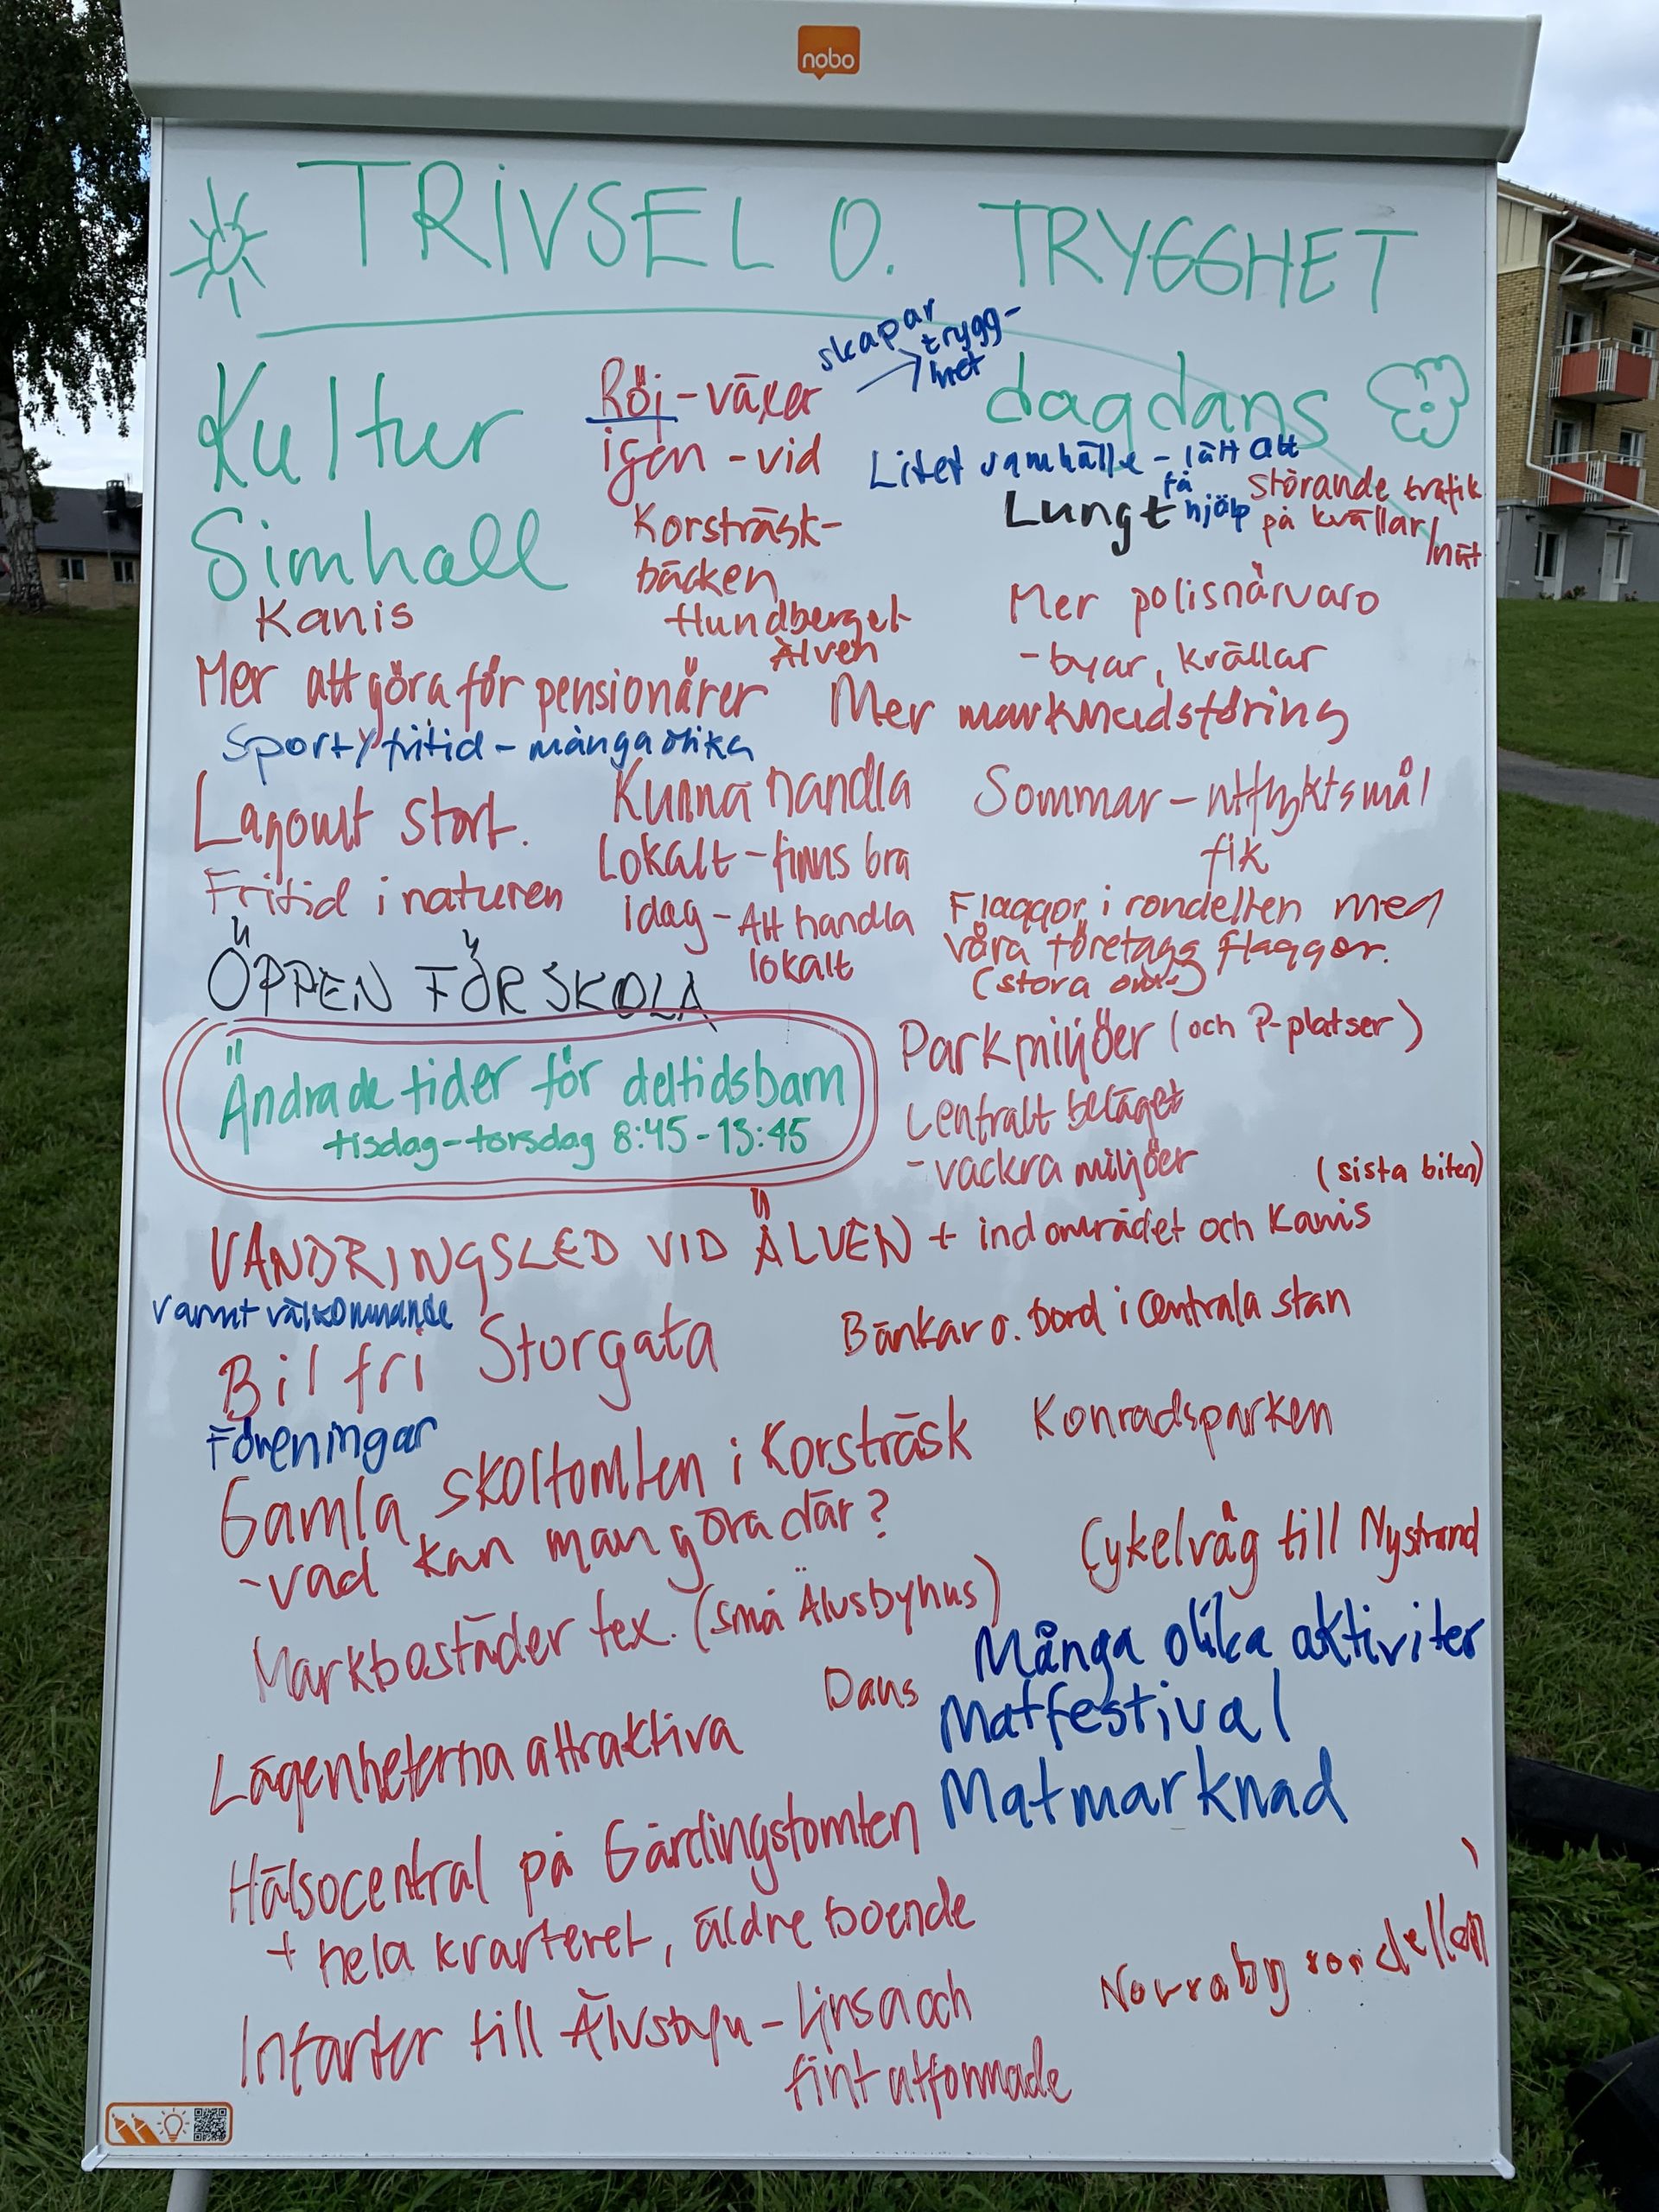 nobo
TRIVSEL O. TRYGGHET
Kultur
Simhall
Kanis
Röj-växer
igen - vid
Korsträsk-
bäcken
Hundberget
Älven
skapar
trygg-
het
dagdans
Litet samhälle - lätt att
få
hjälp
Lungt
Störande trafik
på kvällar/
nät
Mer polisnärvaro
- byar, kvällar
Mer att göra för pensionärer
Mer marknadsföring
Sport/fritid - många olika
Lagomt stort.
Fritid i naturen
Kunna handla
lokalt - finns bra
idag - Att handla
lokalt
Sommar - utflyktsmål
fik
Flaggor i rondellen med
våra företags flaggor.
(stora
ÖPPEN FÖRSKOLA
Ändrade tider för deltidsbarn
tisdag-torsdag 8:45-13:45
Parkmiljöer (och P-platser)
Centralt beläget
- vackra miljöer
(sista biten)
VANDRINGSLED VID ÄLVEN + indområdet och Kanis
Varmt välkommande
Bil fri Storgata
Bänkar o. bord i centrala stan
Föreningar
Gamla skoltomten i Korsträsk
- vad kan man göra där?
Konradsparken
Cykelväg till Nystrand
Markbostäder tex. (små Älvsbyhus)
Dans
Många olika aktiviter
Matfestival
Matmarknad
Lägenheterna attraktiva
Hälsocentral på Gärdingstomten
+ hela kvarteret, äldre boende
Infarter till Älvsbyn - ljusa och
fint utformade
Norraby rondellen